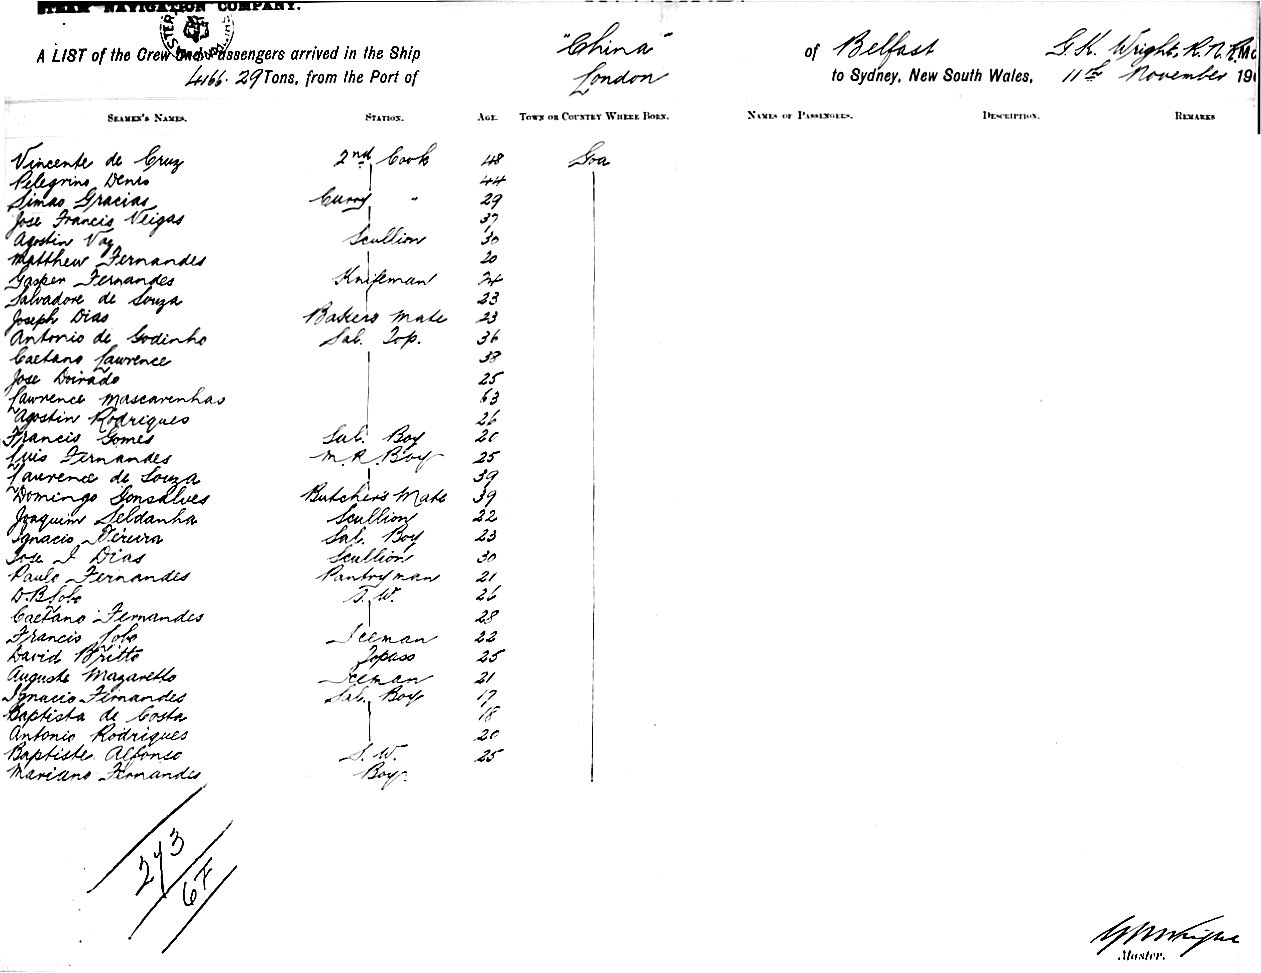 STEAM NAVIGATION COMPANY.
A LIST of the Crew and Passengers arrived in the Ship "China" of Belfast G. K. Wright, R. N. R.
4166. 29 Tons, from the Port of London to Sydney, New South Wales, 11th November 19
SEAMEN'S NAMES. STATION. AGE. TOWN OR COUNTRY WHERE BORN. NAMES OF PASSENGERS. DESCRIPTION. REMARKS
Vincente de Cruz 2nd Cook 48 Goa
Pelegrino Denis 44
Simao Gracias Curry " 29
Jose Francis Veigas 37
Agostin Vaz Scullion 30
Matthew Fernandes 20
Gasper Fernandes Knifeman 24
Salvadore de Souza 23
Joseph Dias Bakers Mate 23
Antonio de Godinho Sal. Top. 36
Caetano Lawrence 38
Jose Doirado 25
Lawrence Mascarenhas 63
Agostin Rodrigues 26
Francis Gomes Sal. Boy 20
Luis Fernandes M. R. Boy 25
Laurence de Souza 39
Domingo Gonsalves Butchers Mate 39
Joaquim Seldanha Scullion 22
Ignacio Pereira Sal. Boy 23
Jose I Dias Scullion 30
Paulo Fernandes Pantryman 21
D. B Lobo S. W. 26
Caetano Fernandes 28
Francis Lobo Iceman 22
David Britto Topass 25
Auguste Mazaretto Iceman 21
Ignacio Fernandes Sal. Boy 17
Baptista de Costa 18
Antonio Rodrigues 20
Baptiste Alfonso S. W. 25
Mariano Fernandes Boy.
243
6F
Master.